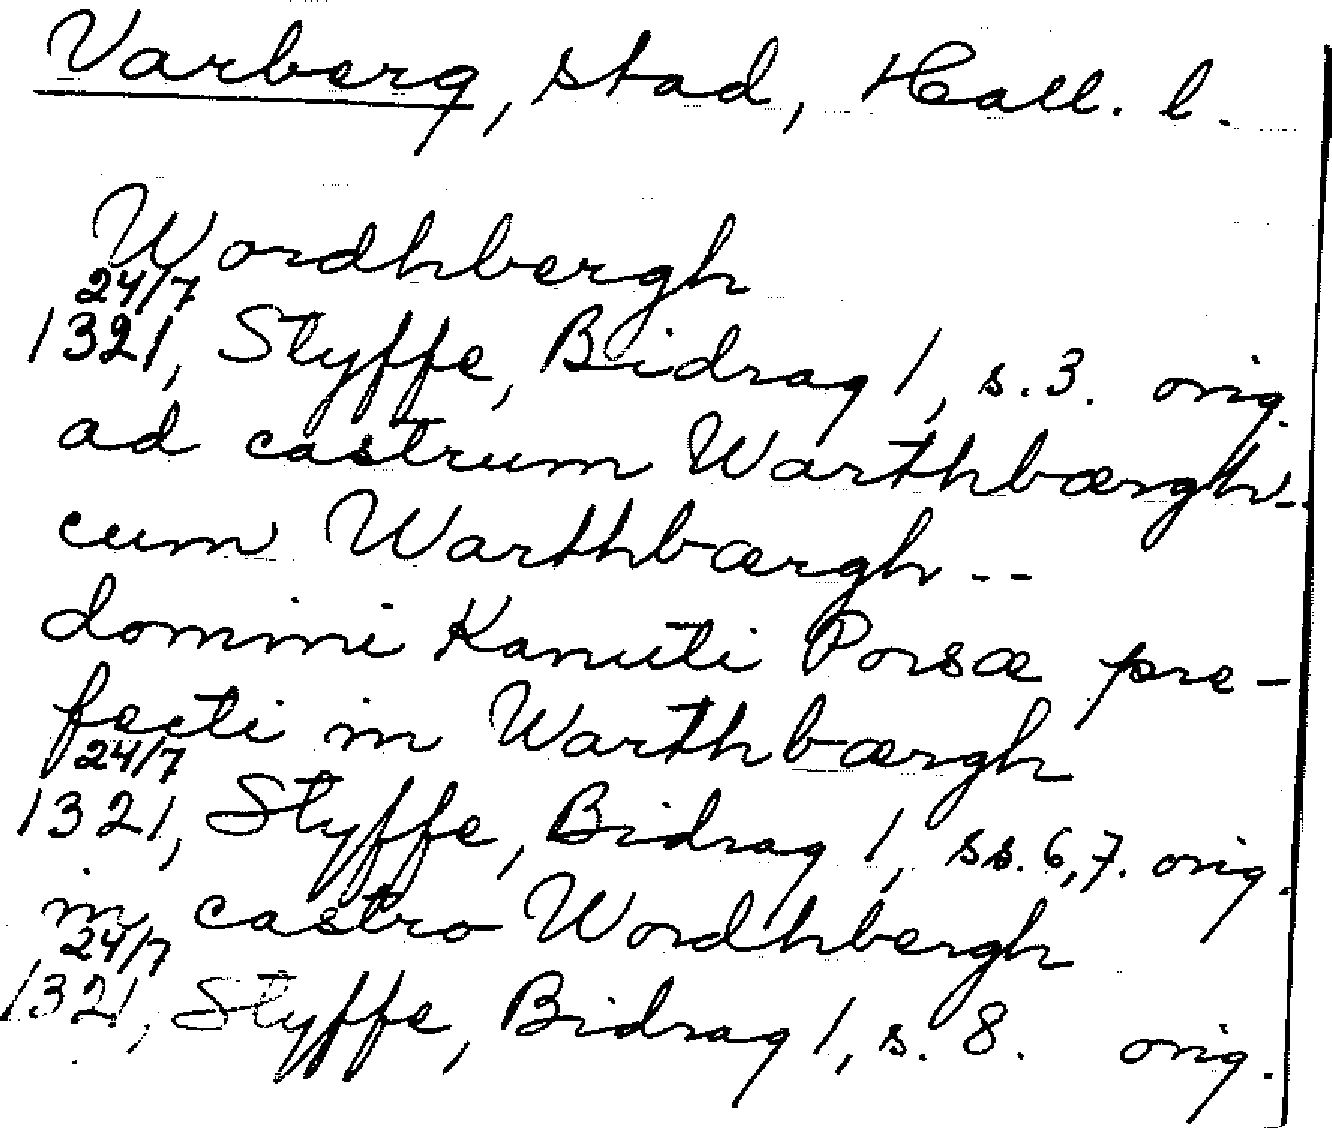 Varberg, stad, Hall. l.
Wordhbergh
24/7
1321, Styffe, Bidrag 1, s. 3. orig.
ad castrum Warthbærgh -
cum Warthbærgh --
domini Kanuti Porsæ pre-
fecti in Warthbærgh
24/7
1321, Styffe, Bidrag 1, ss. 6,7. orig.
in castro Wordhbergh
24/7
1321, Styffe, Bidrag 1, s. 8. orig.